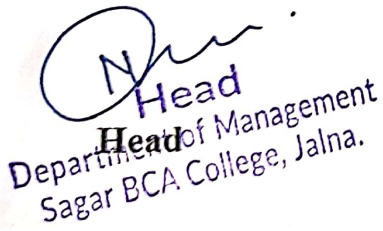 Head
Head
Department of Management
Sagar BCA College, Jalna.